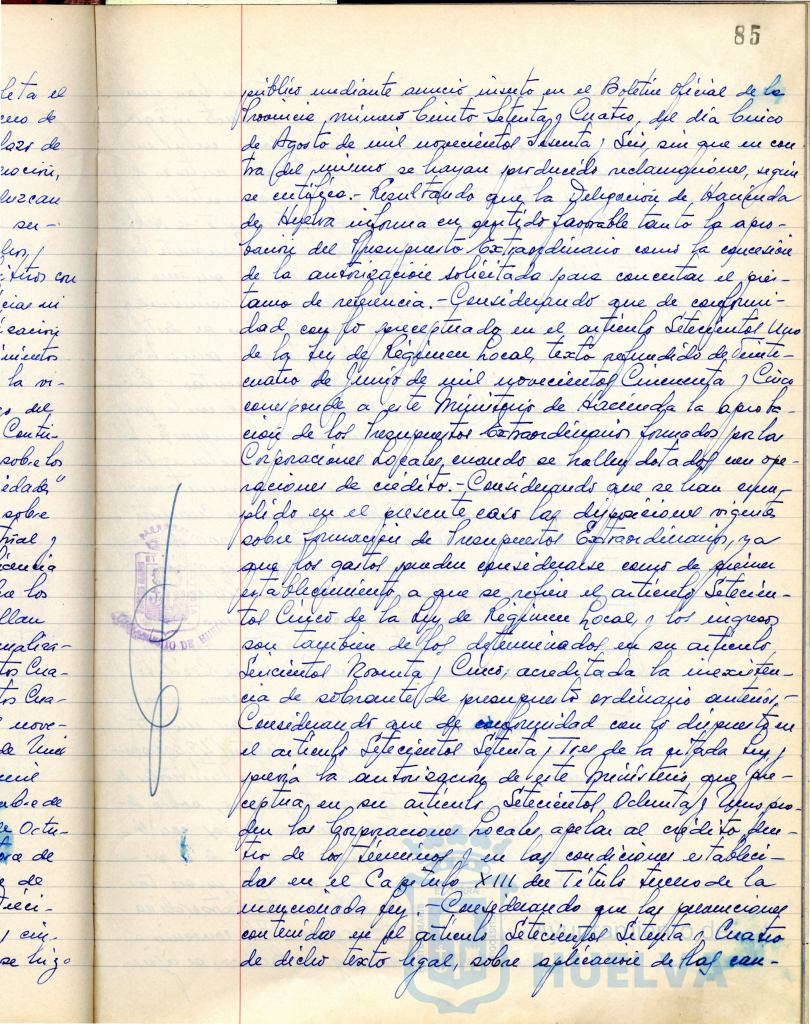 85
público mediante anuncio inserto en el Boletín Oficial de la
Provincia, número Ciento Setenta y Cuatro, del día Cinco
de Agosto de mil novecientos Sesenta y Seis, sin que en con-
tra del mismo se hayan producido reclamaciones, según
se certifica.- Resultando que la Delegación de Hacienda
de Huelva informa en sentido favorable tanto la apro-
bación del Presupuesto Extraordinario como la concesión
de la autorización solicitada para concertar el prés-
tamo de referencia.- Considerando que de conformi-
dad con lo preceptuado en el artículo Setecientos Uno
de la Ley de Régimen Local, texto refundido de Veinti-
cuatro de Junio de mil novecientos Cincuenta y Cinco
corresponde a este Ministerio de Hacienda la aproba-
ción de los Presupuestos Extraordinarios formados por las
Corporaciones Locales, cuando se hallen dotados con ope-
raciones de crédito.- Considerando que se han cum-
plido en el presente caso las disposiciones vigentes
sobre formación de Presupuestos Extraordinarios, ya
que los gastos pueden considerarse como de primer
establecimiento a que se refiere el artículo Setecien-
tos Cinco de la Ley de Régimen Local, y los ingresos
son también de los determinados en su artículo
Seiscientos Noventa y Cinco, acreditada la inexisten-
cia de sobrante de presupuesto ordinario anterior.-
Considerando que de conformidad con lo dispuesto en
el artículo Setecientos Setenta y Tres de la citada Ley,
previa la autorización de este Ministerio que pre-
ceptua en su artículo Setecientos Ochenta y Uno, pue-
den las Corporaciones Locales, apelar al crédito den-
tro de los términos y en las condiciones estableci-
das en el Capítulo XIII del Título tercero de la
mencionada Ley.- Considerando que las prevenciones
contenidas en el artículo Setecientos Setenta y Cuatro
de dicho texto legal, sobre aplicación de las can-
HUELVA